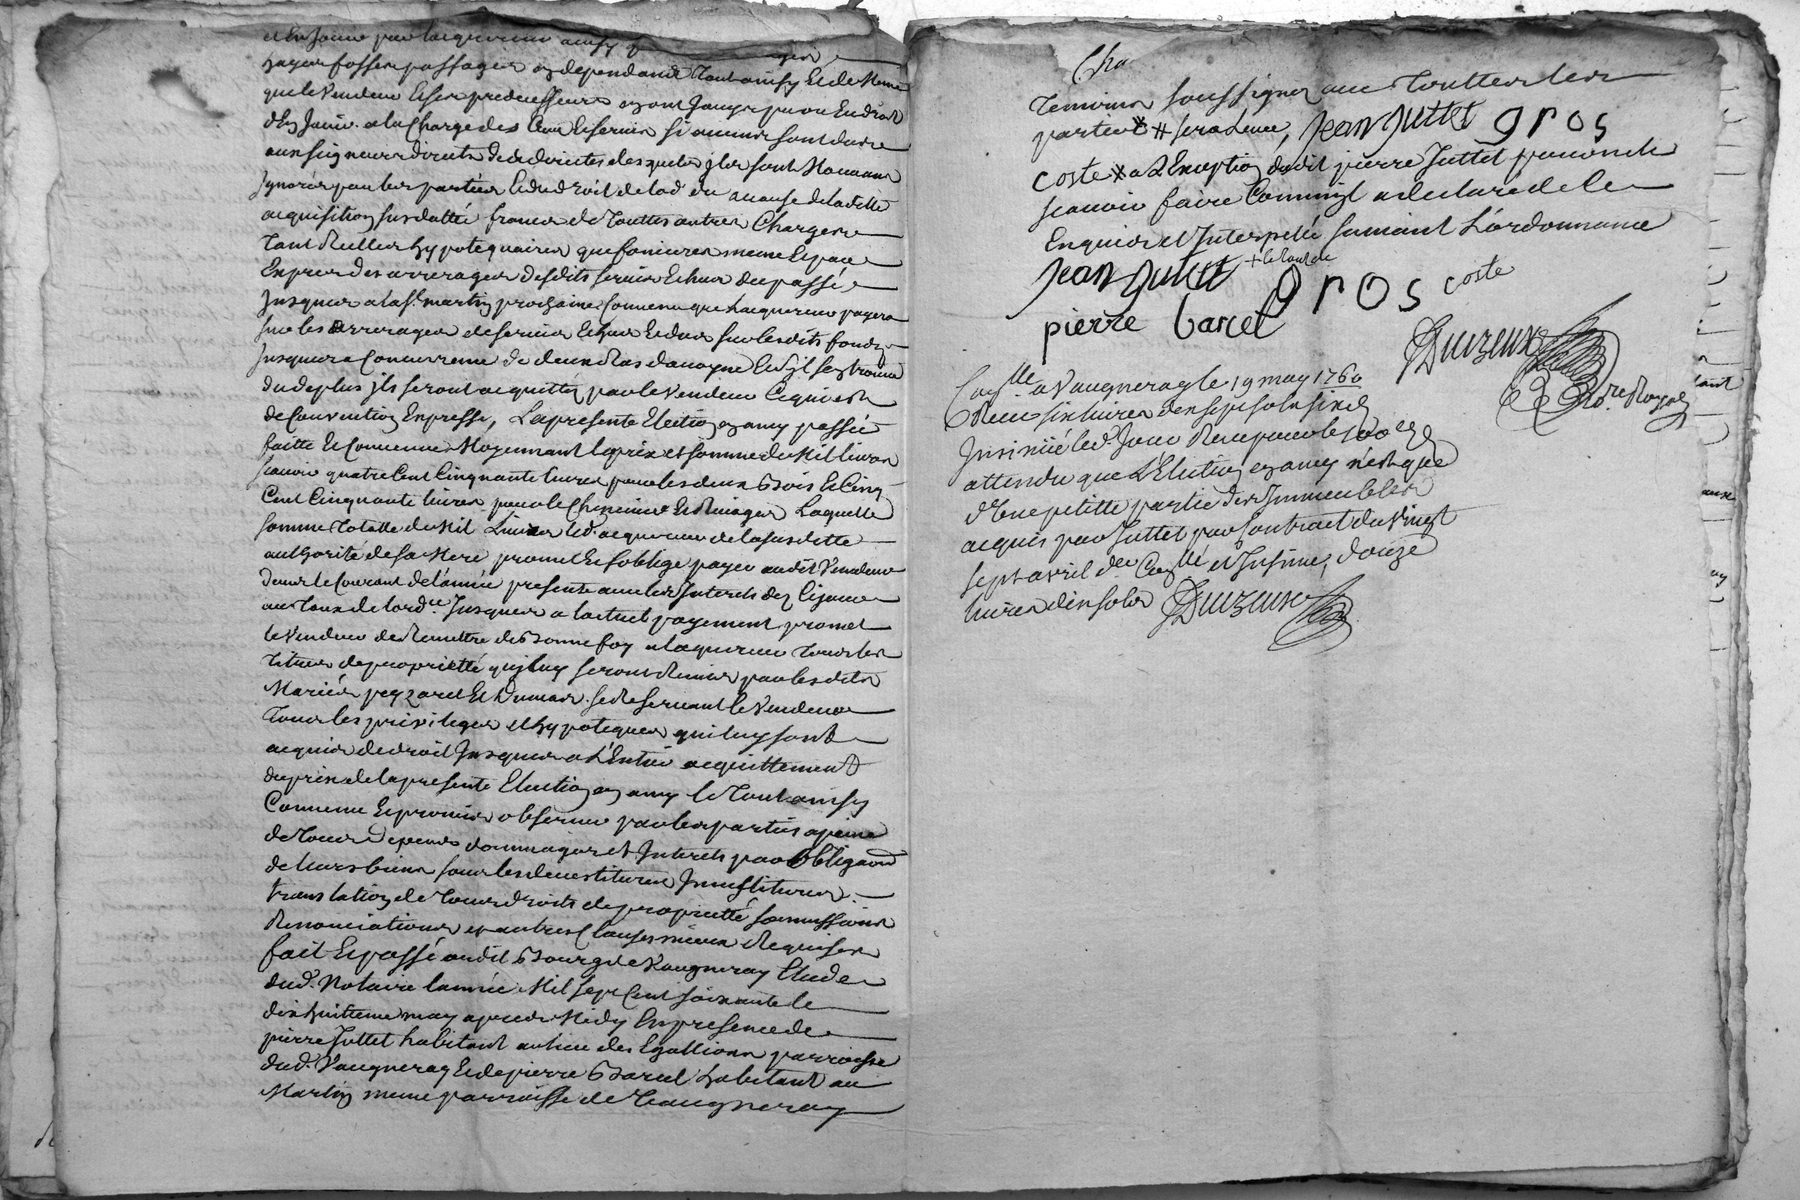 et en jouir par lacquereur ainsy
que le Vendeur et ses predecesseurs en ont Jouy et pu ou En droit
d'En Jouir. a la Charge des Cens et servis si aucuns sont dus
aux seigneurs directs des directes desquels ils se sont
Ignorés par les parties et du droit de lod du a cause de la ditte
acquisition susdattée francs de Touttes autres Charges
Tant Reelles hypotequaires que foncieres meme Et par
Exprès des arrerages desdits servis Echus du passé
Jusques a la st martin prochaine convenu que lacquereur payera
sur les arrerages de servis Echus et dus sur lesdits fonds
Jusques a Concurrence de deux Ras davoyne Et s'il sen trouve
du de plus ils seront acquittés par le Vendeur Ce qui est
de Convention Expresse, La presente Election en amy passée
faitte et Convenue Moyennant le prix et somme de Mil livres
scavoir quatre Cent Cinquante livres pour les deux Bois Et Cinq
Cent Cinquante livres pour le Cheneviere et Laquelle
somme Totalle de Mil Livres led. acquereur de la susditte
authorité de sa Mere promet et soblige payer audit Vendeur
dans le Courant de l'année presente avec les Interets des Ce jour
au Taux de lord.ce Jusques a lactuel payement promet
le Vendeur de Remettre de Bonne foy a lacquereur Tous les
Titres de proprietté qui luy seront Remis par lesdits
Mariés peyzaret Et Dumas. se Reservant le Vendeur
Tous les privileges et hypoteques qui luy sont
acquis de droit Jusques a L'Entier acquittement
du prix de la presente Election en amy le Tout ainsy
Convenu Et promis observer par les parties a peine
de Tous depens dommages et Interets par obligaon
de leurs biens sous les devestitures Investitures
translation de Tous droits de proprietté soumissions
Renonciations et autres Clauses mieux Requises
fait Et passé audit Bourg de Vaugneray Etude
dud. Notaire lannée Mil sept Cent soixante le
dixhuitieme may apres Midy En presence de
pierre Juttet habitant au lieu des parroisse
dud. Vaugneray Et de pierre Barcel habitant au
Martin meme parroisse de Vaugneray
Temoins soussignez avec Touttes les
parties # sera Leue, Jean Juttet gros
coste a L'Exception dudit pierre Juttet pour ne le
scavoir faire Comme il a declaré de ce
Enquis et Interpellé suivant L'ordonnance
Jean Juttet gros coste
pierre barcel
Duizeux
No.re Royal
Con.llé a Vaugneray le 19 may 1760
Receu six livres dix sept sols six d.
Insinué led. Jour Receu pour le 100.e
attendu que L'Election en amy n'est que
d'Une petitte partie des Immeubles
acquis par Juttet par Contract du Vingt
sept avril d.er Con.llé et Insinué, douze
livres dix sols Duizeux